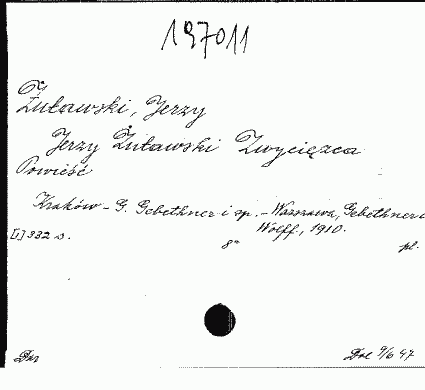 197011
Żuławski, Jerzy
Jerzy Żuławski Zwycięzca
Powieść
Kraków - G. Gebethner i sp. - Warszawa, Gebethner i
Wolff., 1910.
[1] 332 s. 8° pl.
Dar 9/6 47